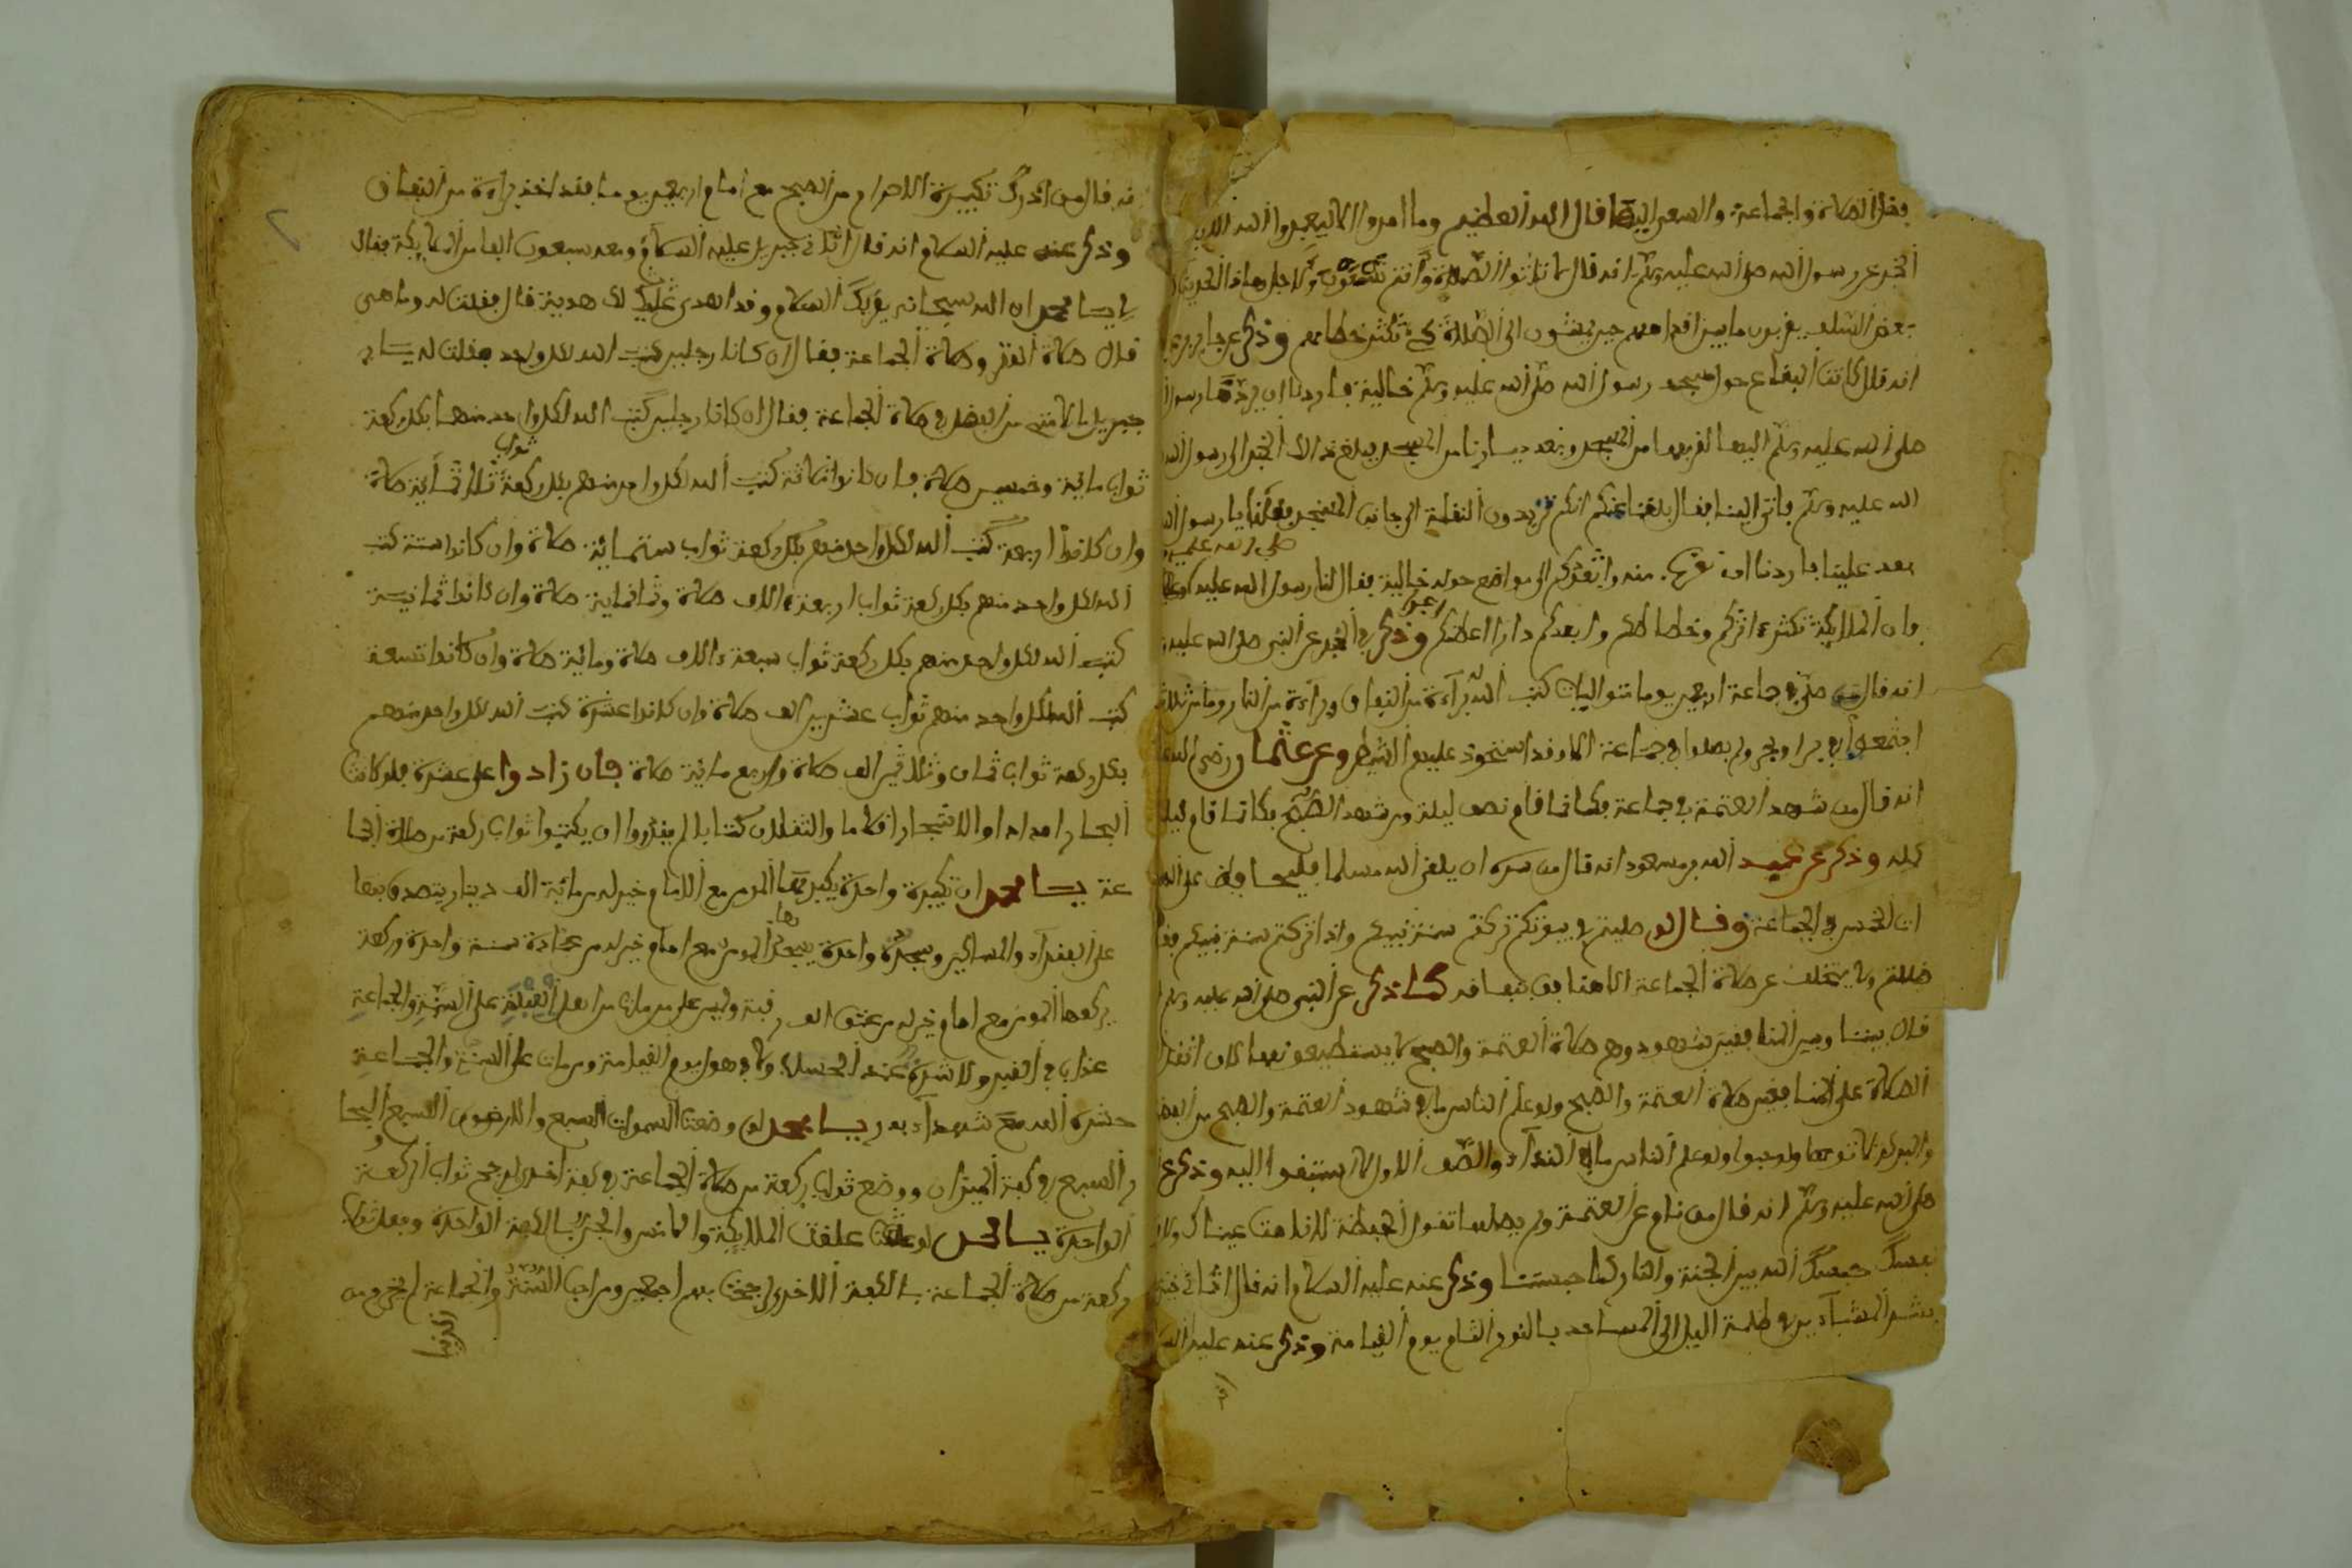 فضل الصلاة والجماعة والسعي اليها قال الله العظيم وما امروا الا ليعبدوا الله
الخبر عن رسول الله صلى الله عليه وسلم انه قال لا تاتوا الصلاة وانتم تسعون ولاجل هاذا الحديث
بعض السلف يقربون ما بين اقدامهم حين يمشون الى الصلاة كي تكثر خطاهم وذكر عن جابر
انه قال كانت البقاع حول مسجد رسول الله صلى الله عليه وسلم خالية فاردنا ان
صلى الله عليه وسلم اليها لقربها من المسجد وبعد ديارنا من المسجد فبلغ ذالك الخبر الى رسول الله
الله عليه وسلم فاتى الينا فقال بلغنا عنكم انكم تريدون النقلة الى جانب المسجد فقلنا يا رسول الله
بعد علينا فاردنا ان نقرب منه وابقعتكم الى مواضع حوله خالية فقال لنا رسول الله صلى الله عليه
فان الملائكة تكثر ءاثركم وخطاكم وابعدكم دارا اعظمكم اجرا وذكر في الخبر عن النبي صلى الله عليه
انه قال من صلى في جماعة اربعين يوما متواليات كتب الله براءة من النفاق وبراءة من النار وما من ثلاثة
اجتمعوا في بر او بحر ولم يصلوا في جماعة الا وقد استحوذ عليهم الشيطن وعن عثمان رضي الله
انه قال من شهد العتمة في جماعة فكانما قام نصف ليلة ومن شهد الصبح فكانما قام ليلة
كله وذكر عن عبد الله بن مسعود انه قال من سره ان يلقى الله مسلما فليحافظ على
الخمس في الجماعة وقال لو صليتم في بيوتكم تركتم سنة نبيكم واذا تركتم سنة نبيكم
ضللتم ولا يتخلف عن صلاة الجماعة الا منافق نفاقه كما ذكر عن النبي صلى الله عليه وسلم
قال بيننا وبين المنافقين شهود وهم صلاة العتمة والصبح لا يستطيعونهما لان اثقل
الصلاة على المنافقين صلاة العتمة والصبح ولو علم الناس ما في شهود العتمة والصبح من
والبركة لاتوهما ولو حبوا ولو علم الناس ما في النداء والصف الاول لاستبقوا اليه وذكر عن
صلى الله عليه وسلم انه قال من نام عن العتمة ولم يصلها تقول الحفظة لا نامت عيناك ولا
نفسك حبسك الله بين الجنة والنار كما حبستنا وذكر عنه عليه السلام انه قال
بشر المشائين في ظلمة الليل الى المساجد بالنور التام يوم القيامة وذكر عنه عليه
انه قال من ادرك تكبيرة الاحرام من الصبح مع امام اربعين يوما فقد اخذ براءة من النفاق
وذكر عنه عليه السلام انه قال اتاني جبريل عليه السلام ومعه سبعون الفا من الملائكة فقال
يا محمد ان الله سبحانه يقريك السلام وقد اهدى لك هدية قال فقلت له وما هي
قال صلاة الوتر وصلاة الجماعة فقال ان كانا رجلين كتب الله لكل واحد فقلت له يا
جبريل ما لامتي من الفضل في صلاة الجماعة فقال ان كانا رجلين كتب الله لكل واحد منهما بكل ركعة
ثواب مائة وخمسين صلاة فان كانوا ثلاثة كتب الله لكل واحد منهم بكل ركعة ثواب ثلاثمائة صلاة
وان كانوا اربعة كتب الله لكل واحد منهم بكل ركعة ثواب ستمائة صلاة وان كانوا ستة كتب
الله لكل واحد منهم بكل ركعة ثواب اربعة ءالاف صلاة وثمانماية صلاة وان كانوا ثمانية
كتب الله لكل واحد منهم بكل ركعة ثواب سبعة ءالاف صلاة ومائة صلاة وان كانوا تسعة
كتب الله لكل واحد منهم ثواب عشرين الف صلاة وان كانوا عشرة كتب الله لكل واحد منهم
بكل ركعة ثواب ثمان وثلاثين الف صلاة واربع مائة صلاة فان زادوا على عشرة فلو كانت
البحار امدادا والاشجار اقلاما والثقلان كتابا لم يقدروا ان يكتبوا ثواب ركعة من صلاة الجما
عة يا محمد ان تكبيرة واحدة يكبرها المومن مع الامام خير له من مائة الف دينار يتصدق بها
على الفقراء والمساكين وسجدة واحدة يسجدها المومن مع امام خير له من عبادة سنة واحدة وركعة
يركعها المومن مع امام خير له من عتق الف رقبة وليس على من مات من اهل القبلة على السنة والجماعة
عذاب في القبر ولا شدة عند الحساب ولا في هول يوم القيامة ومن مات على السنة والجماعة
حشره الله مع شهداء بدر يا محمد لو وضعت السموات السبع والارضون السبع والبحا
ر السبع في كفة الميزان ووضع ثواب ركعة من صلاة الجماعة في كفة اخرى لرجح ثواب الركعة
الواحدة يا محمد لو علقت الملائكة والانس والجن بالكفة الواحدة وجعل ثواب
ركعة من صلاة الجماعة بالكفة الاخرى لرجحت بهم اجمعين ومن احب السنة والجماعة لم يخرج من
الدنيا